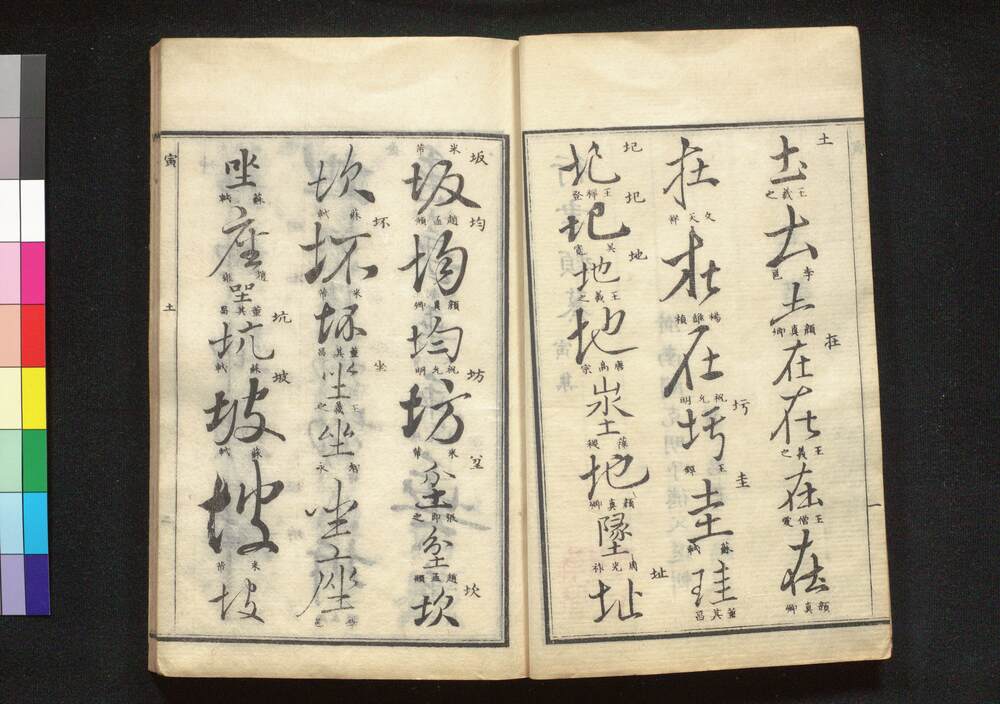 土
土 王羲之
土 李邕
土 顔真卿
在
在
在 王羲之
在 王僧虔
在 顔真卿
一
在 文天祥
在 楊維楨
在 祝允明
圬
圬 王鐸
圭
圭 蘇軾
珪 董其昌
圮
圮 王穉登
圯
圯 吳寬
地
地 王羲之
地 唐高宗
地 顔真卿
墬 周光祚
址
址
坂
坂 米芾
坂 趙孟頫
均
均 顔真卿
均 祝允明
坊
坊 米芾
坌
坌 張即之
坌 趙孟頫
坎
坎
坎 蘇軾
坏
坏 米芾
坏 董其昌
坐
坐 王羲之
坐 智永
坐
坐 李邕
坐 蘇軾
座
坐 董其昌
坑
坑 蘇軾
坡
坡 蘇軾
坡 米芾
坡
寅
土
二